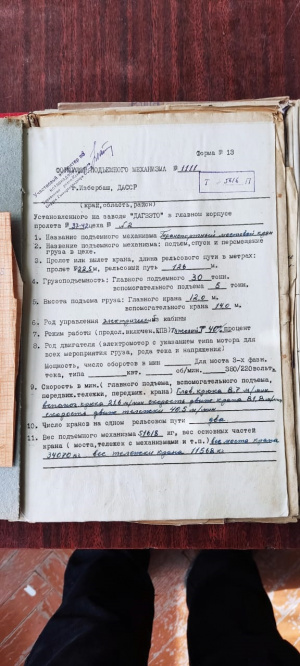 Форма № 13
ФОРМУЛЯР ПОДЪЕМНОГО МЕХАНИЗМА № 1111
г.Избербаш, ДАССР
(край, область, район)
Установленного на заводе "ДАГЗЭТО" в главном корпусе
пролете цеха № 2
1. Название подъемного механизма мостовой кран
2. Название подъемного механизма: подъем, спуск и перемещение
груза в цехе.
3. Пролет или вылет крана, длина рельсового пути в метрах:
пролет 22,5 м, рельсовый путь 126 м.
4. Грузоподъемность: Главного подъемного 30 тонн.
вспомогательного подъема 5 тонн.
5. Высота подъема груза: Главного крана 12,0 м.
вспомогательного крана 14,0 м.
6. Род управления электрический кабины
7. Режим работы (продол.включен. 40% процент
8. Род двигателя (электромотор с указанием типа мотора для
всех мероприятия груза, рода тока и напряжения)
Мощность, число оборотов в мин. Для моста 3-х фазн.
тока, типа квт. об/мин. 380/220 вольт.
9. Скорость в мин.( главного подъема, вспомогательного подъема,
передвиж.тележки, передвиж. крана) Глав. крюка 8.7 м/мин.
скорость движ. крана
скорость движ. тележки 40.5 м/мин
10. Число кранов на одном рельсовом пути два
11. Вес подъемного механизма кг, вес основных частей
крана ( моста,тележек с механизмами и т.п.) вес моста крана
34070 кг вес тележки крана 11568 кг